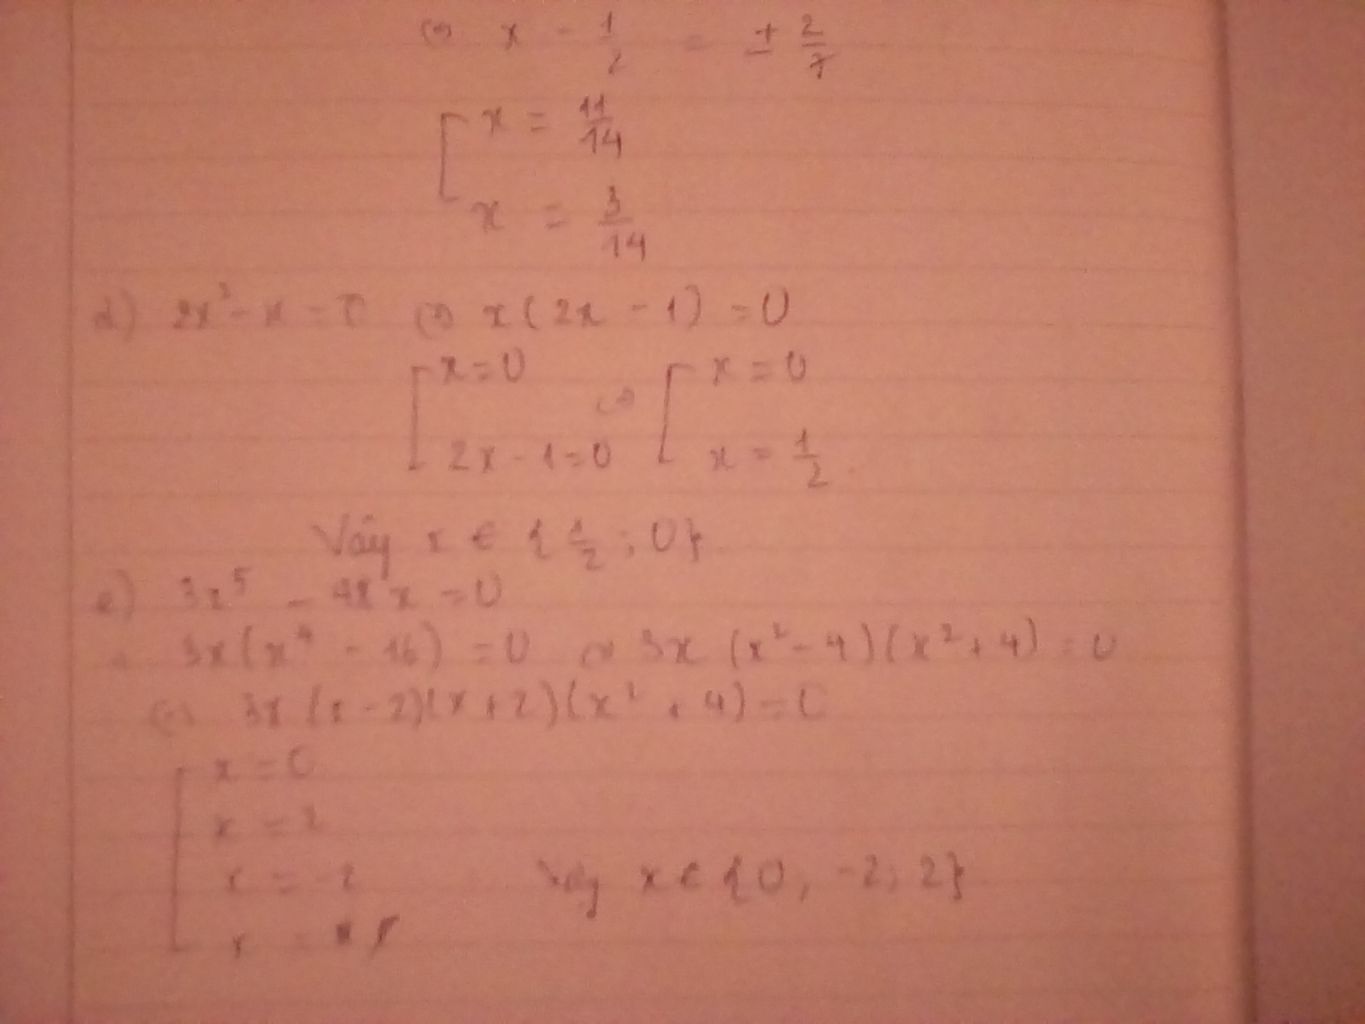 ⇔ x - 1/2 = ± 2/7
x = 11/14
x = 3/14
d) 2x² - x = 0 ⇔ x(2x - 1) = 0
x = 0 ⇔ x = 0
2x - 1 = 0 x = 1/2
Vậy x ∈ {1/2 ; 0}
e) 3x⁵ - 48x = 0
3x(x⁴ - 16) = 0 ⇔ 3x(x² - 4)(x² + 4) = 0
⇔ 3x(x - 2)(x + 2)(x² + 4) = 0
x = 0
x = 2
x = -2 Vậy x ∈ {0, -2, 2}
x =